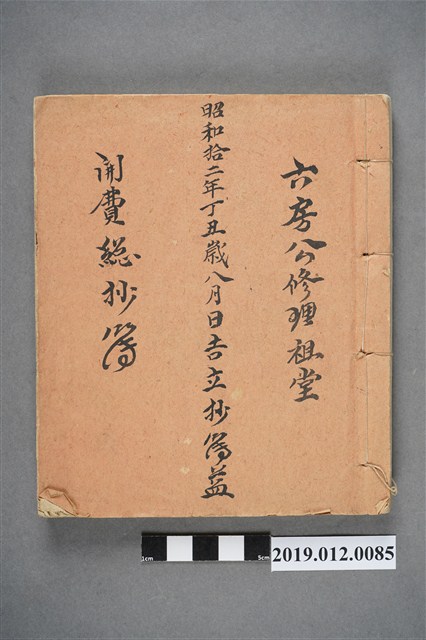 六房公修理祖堂
昭和拾二年丁丑歲八月日吉立抄簿益
開費總抄簿
1cm 5cm
2019.012.0085